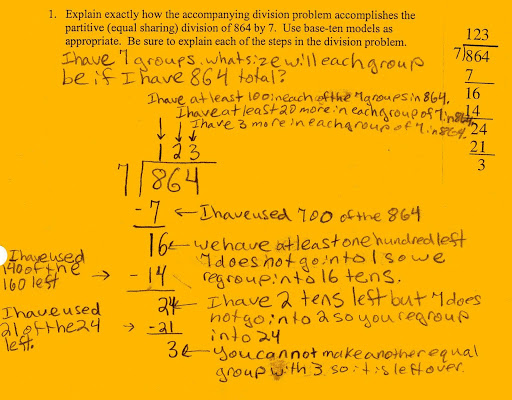 1. Explain exactly how the accompanying division problem accomplishes the
partitive (equal sharing) division of 864 by 7. Use base-ten models as
appropriate. Be sure to explain each of the steps in the division problem.
123
7)864
7
16
14
24
21
3
I have 7 groups. what size will each group
be if I have 864 total?
I have at least 100 in each of the 7 groups in 864.
I have at least 20 more in each group of 7 in 864
I have 3 more in each group of 7 in 864.
123
7)864
-7 ← I have used 700 of the 864
16 ← we have at least one hundred left
7 does not go into 1 so we
regroup into 16 tens.
I have used
140 of the
160 left →
-14
24 ← I have 2 tens left but 7 does
not go into 2 so you regroup
into 24
I have used
21 of the 24
left. →
-21
3 ← you cannot make another equal
group with 3 so it is left over.